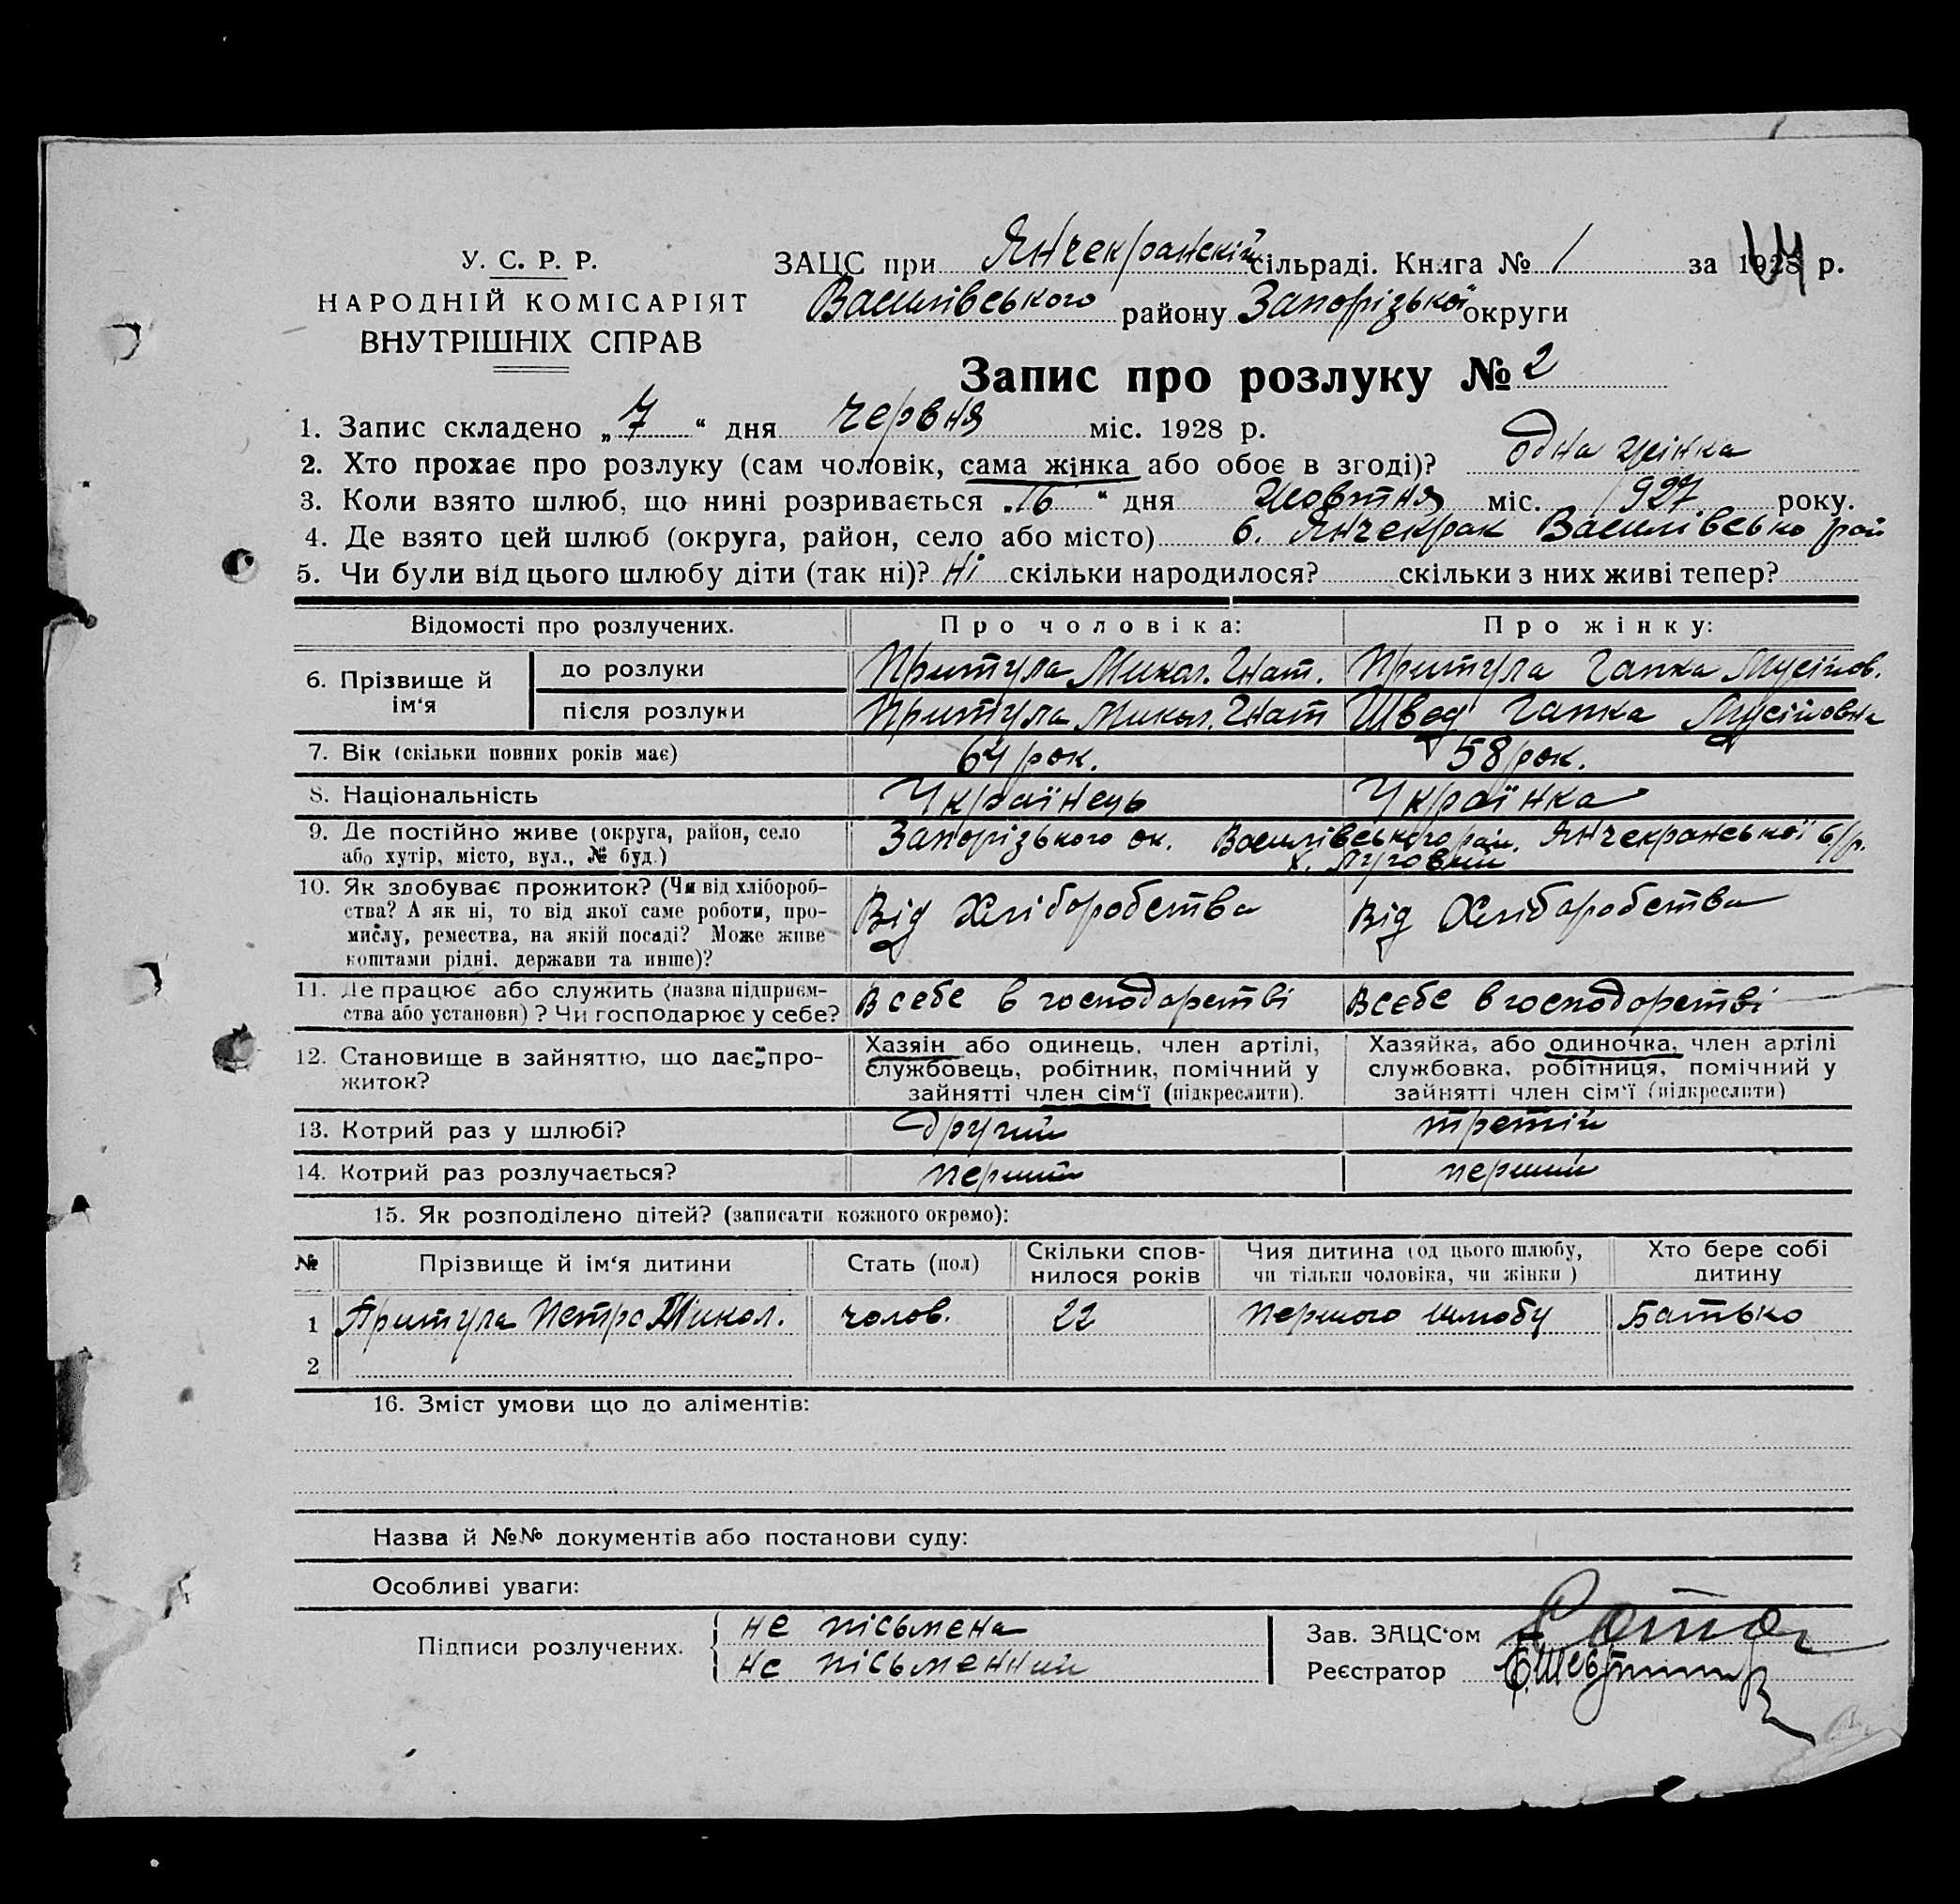 У. С. Р. Р.
НАРОДНІЙ КОМІСАРІЯТ
ВНУТРІШНІХ СПРАВ
ЗАЦС при Янчекранскій сільраді. Книга № 1 за 1928 р.
Василівського району Запорізької округи
Запис про розлуку № 2
1. Запис складено „7“ дня червня міс. 1928 р.
2. Хто прохає про розлуку (сам чоловік, сама жінка або обоє в згоді)? одна жінка
3. Коли взято шлюб, що нині розривається „16“ дня жовтня міс. 1927 року.
4. Де взято цей шлюб (округа, район, село або місто) с. Янчекрак Василівсько рай
5. Чи були від цього шлюбу діти (так ні)? Ні скільки народилося? скільки з них живі тепер?
Відомості про розлучених. Про чоловіка: Про жінку:
6. Прізвище й ім‘я до розлуки Притула Микол. Гнат. Притула Гапка Мусійов.
після розлуки Притула Микол. Гнат Швед Гапка Мусійовна
7. Вік (скільки повних років має) 64 рок. 58 рок.
8. Національність Українець Українка
9. Де постійно живе (округа, район, село або хутір, місто, вул., № буд.) Запорізького ок. Василівського рай. Янчекранської с/р.
х. Луговий
10. Як здобуває прожиток? (Чи від хлібороб-
ства? А як ні, то від якої саме роботи, про-
мислу, ремества, на якій посаді? Може живе
коштами рідні, держави та инше)? Від Хліборобства Від Хліборобства
11. Де працює або служить (назва підприєм-
ства або установи)? Чи господарює у себе? В себе в господарстві В себе в господорстві
12. Становище в зайняттю, що дає про-
житок?
Хазяін або одинець, член артілі,
службовець, робітник, помічний у
зайнятті член сім‘ї (підкреслити).
Хазяйка, або одиночка, член артілі
службовка, робітниця, помічний у
зайнятті член сім‘ї (підкреслити)
13. Котрий раз у шлюбі? другий третій
14. Котрий раз розлучається? перший перший
15. Як розподілено дітей? (записати кожного окремо):
№ Прізвище й ім‘я дитини Стать (пол) Скільки спов-
нилося років Чия дитина (од цього шлюбу,
чи тільки чоловіка, чи жінки) Хто бере собі
дитину
1 Притула Петро Микол. чолов. 22 першого шлюбу Батько
2
16. Зміст умови що до аліментів:
Назва й №№ документів або постанови суду:
Особливі уваги:
Підписи розлучених. не пісьмена
не пісьменний
Зав. ЗАЦС‘ом
Реєстратор